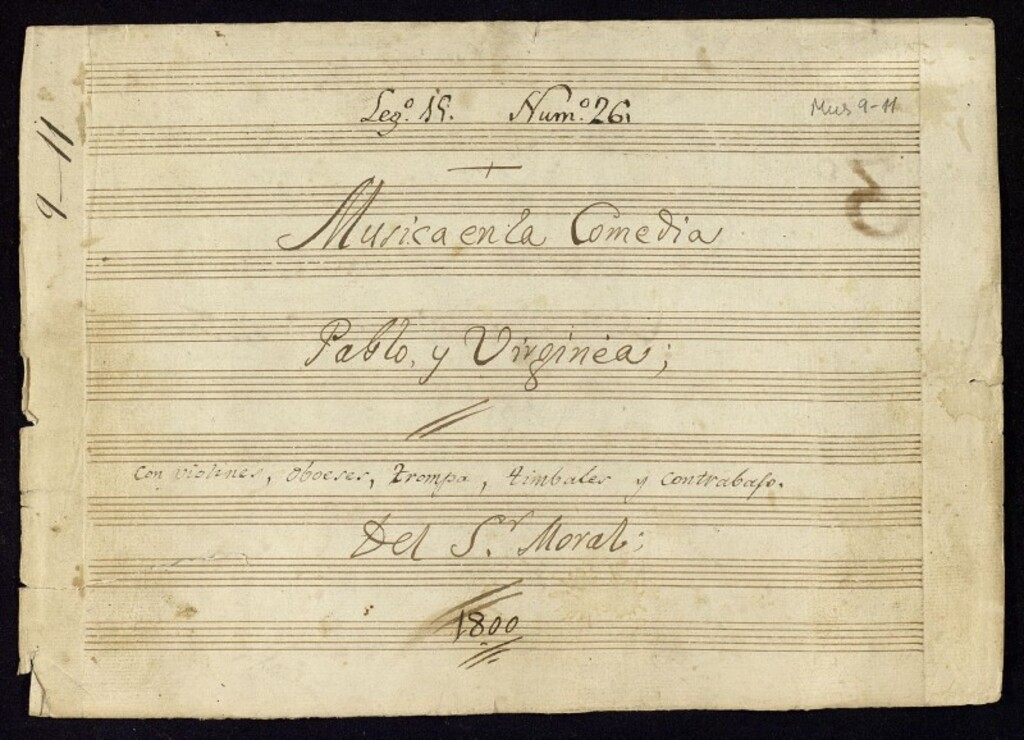 Leg.º 15. Num.º 26.
Mus 9-11
9-11
5
Musica en la Comedia
Pablo, y Virginia;
Con violines, oboeses, trompa, timbales y contrabajo.
Del S.r Moral;
1800